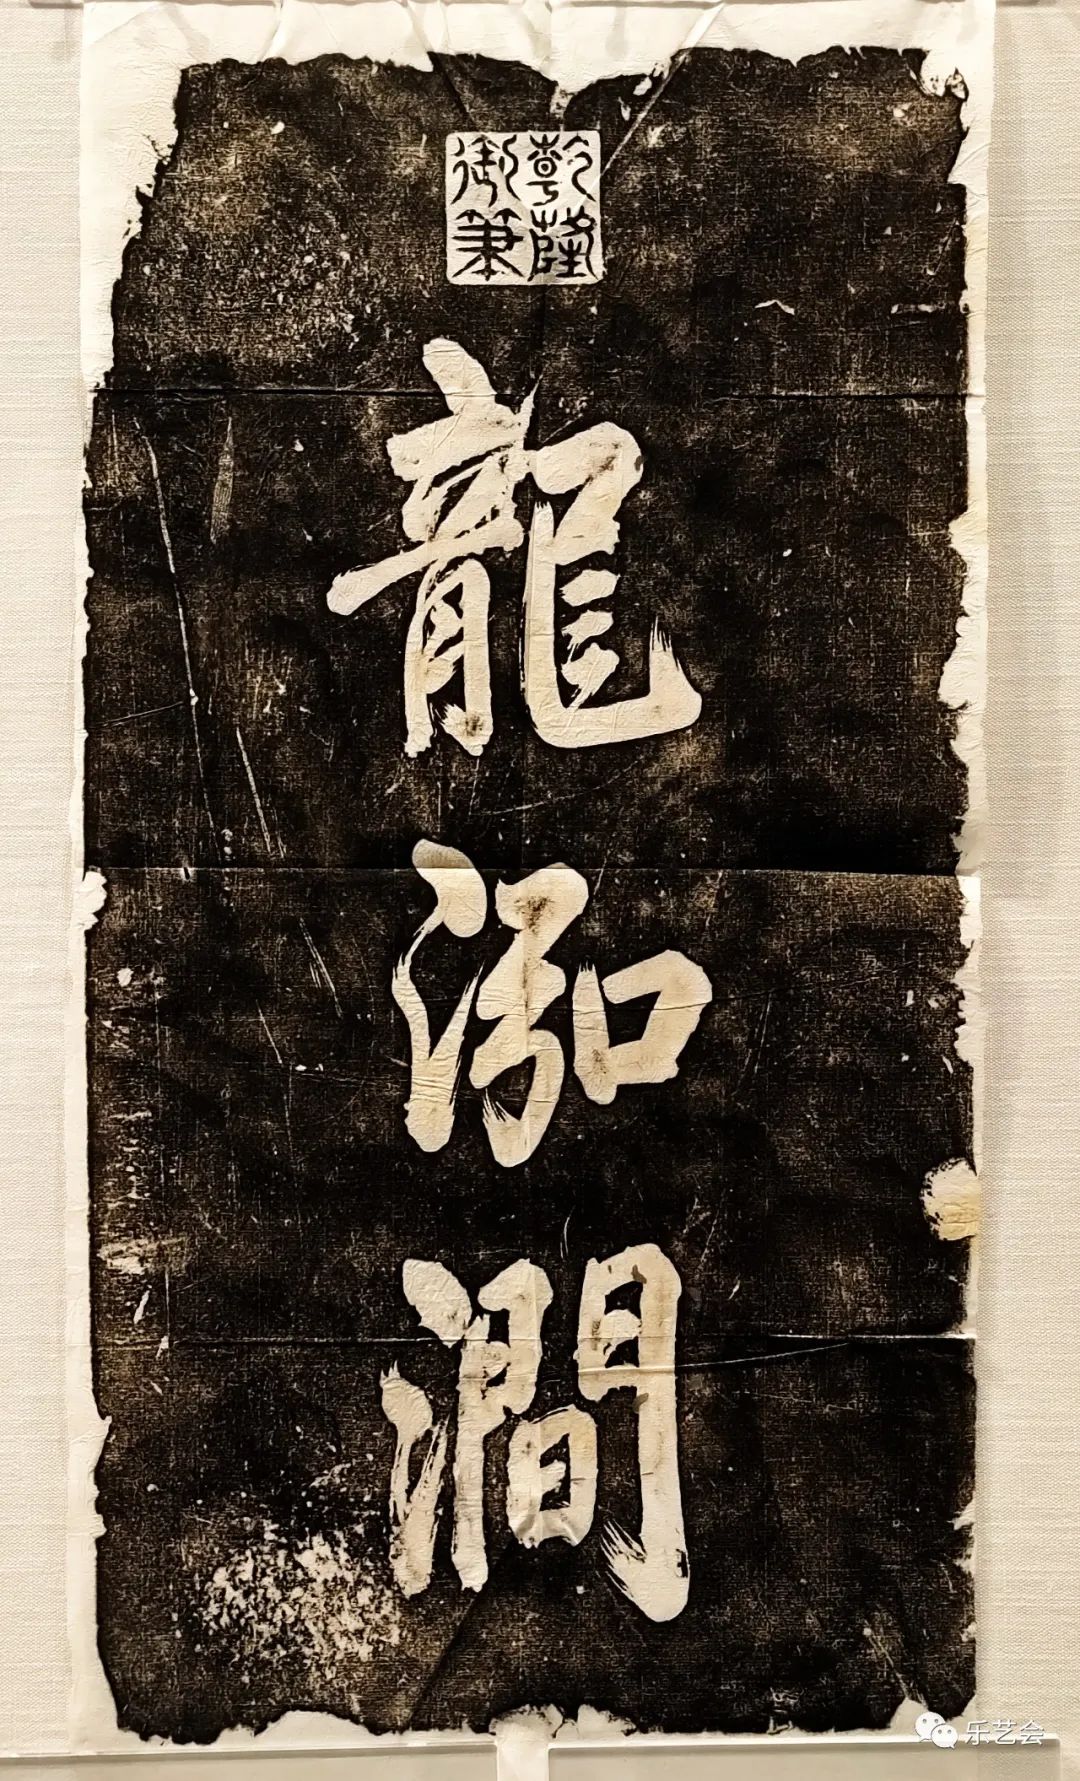 乾隆御筆
龍泓澗
乐艺会